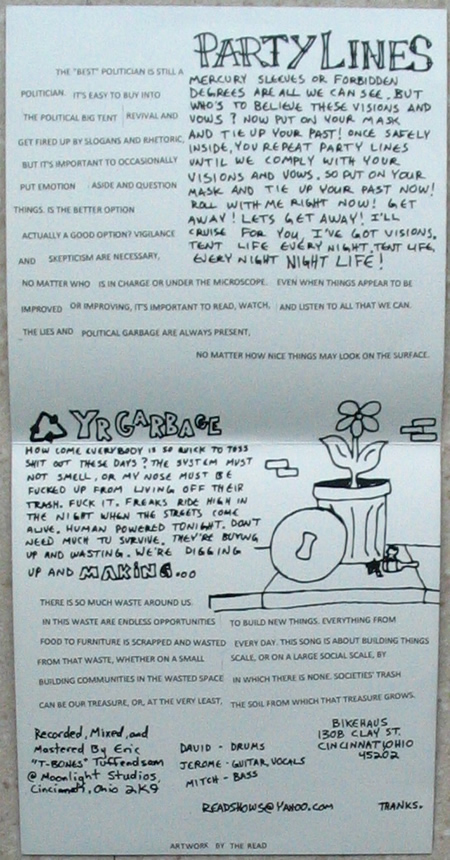 PARTY LINES
MERCURY SLEEVES OR FORBIDDEN
DEGREES ARE ALL WE CAN SEE. BUT
WHO'S TO BELIEVE THESE VISIONS AND
VOWS? NOW PUT ON YOUR MASK
AND TIE UP YOUR PAST! ONCE SAFELY
INSIDE, YOU REPEAT PARTY LINES
UNTIL WE COMPLY WITH YOUR
VISIONS AND VOWS. SO PUT ON YOUR
MASK AND TIE UP YOUR PAST NOW!
ROLL WITH ME RIGHT NOW! GET
AWAY! LETS GET AWAY! I'LL
CRUISE FOR YOU, I'VE GOT VISIONS.
TENT LIFE EVERY NIGHT. TENT LIFE,
EVERY NIGHT NIGHT LIFE!
THE "BEST" POLITICIAN IS STILL A
POLITICIAN. IT'S EASY TO BUY INTO
THE POLITICAL BIG TENT REVIVAL AND
GET FIRED UP BY SLOGANS AND RHETORIC,
BUT IT'S IMPORTANT TO OCCASIONALLY
PUT EMOTION ASIDE AND QUESTION
THINGS. IS THE BETTER OPTION
ACTUALLY A GOOD OPTION? VIGILANCE
AND SKEPTICISM ARE NECESSARY,
NO MATTER WHO IS IN CHARGE OR UNDER THE MICROSCOPE. EVEN WHEN THINGS APPEAR TO BE
IMPROVED OR IMPROVING, IT'S IMPORTANT TO READ, WATCH, AND LISTEN TO ALL THAT WE CAN.
THE LIES AND POLITICAL GARBAGE ARE ALWAYS PRESENT,
NO MATTER HOW NICE THINGS MAY LOOK ON THE SURFACE.
YR GARBAGE
HOW COME EVERYBODY IS SO QUICK TO TOSS
SHIT OUT THESE DAYS? THE SYSTEM MUST
NOT SMELL, OR MY NOSE MUST BE
FUCKED UP FROM LIVING OFF THEIR
TRASH. FUCK IT. FREAKS RIDE HIGH IN
THE NIGHT WHEN THE STREETS COME
ALIVE. HUMAN POWERED TONIGHT. DON'T
NEED MUCH TO SURVIVE. THEY'RE BUYING
UP AND WASTING. WE'RE DIGGING
UP AND MAKING...
THERE IS SO MUCH WASTE AROUND US.
IN THIS WASTE ARE ENDLESS OPPORTUNITIES TO BUILD NEW THINGS. EVERYTHING FROM
FOOD TO FURNITURE IS SCRAPPED AND WASTED EVERY DAY. THIS SONG IS ABOUT BUILDING THINGS
FROM THAT WASTE, WHETHER ON A SMALL SCALE, OR ON A LARGE SOCIAL SCALE, BY
BUILDING COMMUNITIES IN THE WASTED SPACE IN WHICH THERE IS NONE. SOCIETIES' TRASH
CAN BE OUR TREASURE, OR, AT THE VERY LEAST, THE SOIL FROM WHICH THAT TREASURE GROWS.
Recorded, Mixed, and
Mastered By Eric
"T-BONES" Tuffendsam
@ Moonlight Studios,
Cincinnati, Ohio 2K9
DAVID - DRUMS
JEROME - GUITAR, VOCALS
MITCH - BASS
BIKEHAUS
1308 CLAY ST.
CINCINNATI, OHIO
45202
READSHOWS@YAHOO.COM
THANKS.
ARTWORK BY THE READ